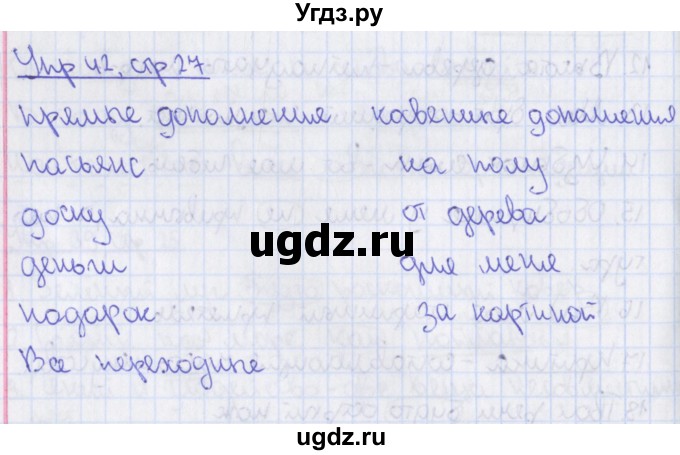 Угдз.ру
Упр 42, стр 27
прямые дополнения косвенные дополнения
пасьянс на полу
доску от дерева
ugdz.ru
деньги для меня
подарок за картиной
Все переходные
ugdz.ru